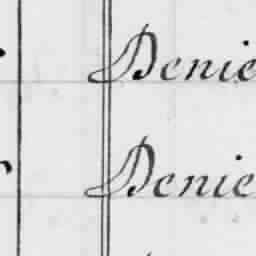 Denie
Denie